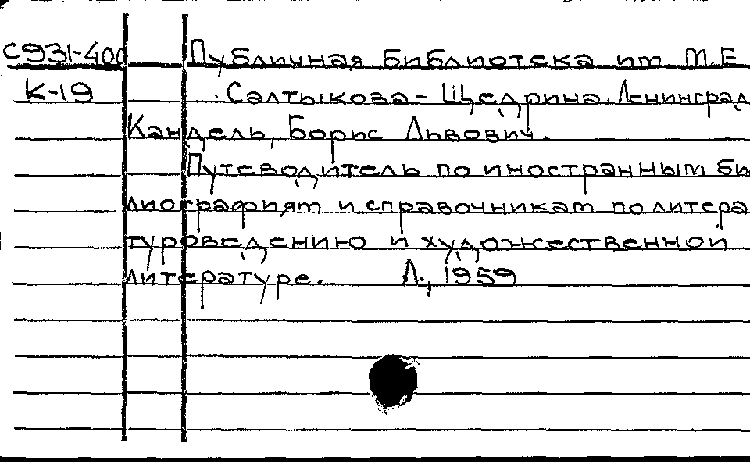 С931-400 Публичная библиотека им М.Е
К-19 Салтыкова-Щедрина. Ленинград
Кандель, Борис Львович.
Путеводитель по иностранным би
лиографиям и справочникам по литера
туроведению и художественной
литературе. Л., 1959